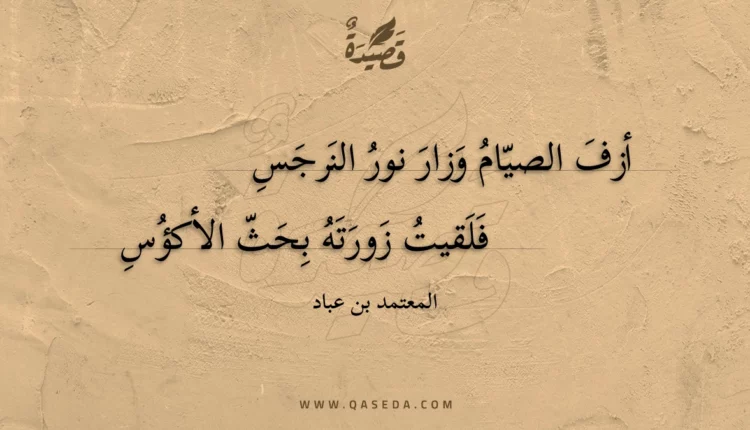 قَصِيْدَةٌ
أزفَ الصيّامُ وَزارَ نورُ النَرجَسِ
فَلَقيتُ زَورَتَهُ بِحَثّ الأكؤُسِ
المعتمد بن عباد
WWW.QASEDA.COM